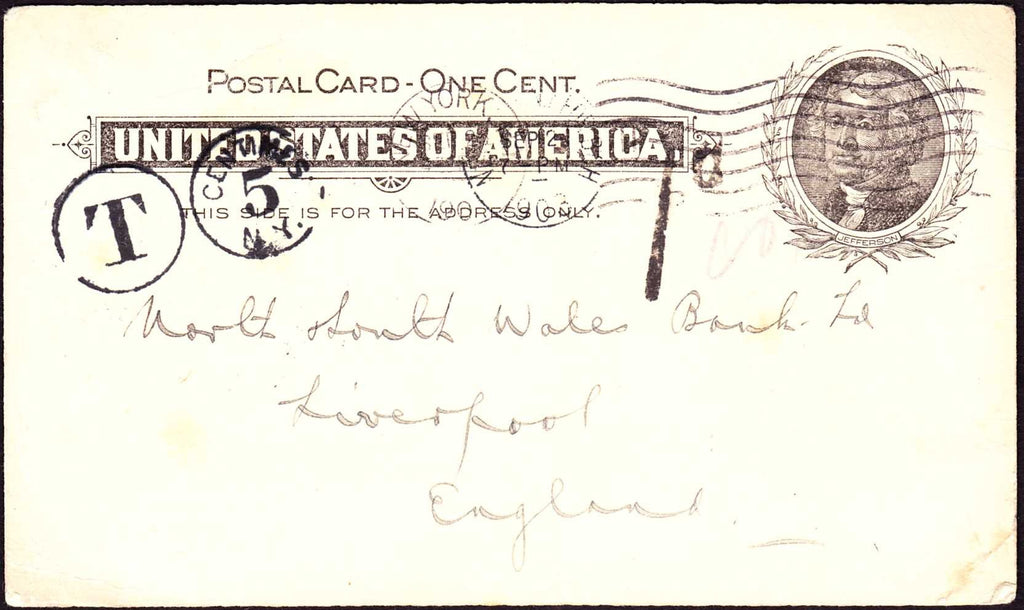 POSTAL CARD - ONE CENT.
UNITED STATES OF AMERICA.
THIS SIDE IS FOR THE ADDRESS ONLY.
JEFFERSON
NEW YORK
T
CENTIMES
5
N.Y.
1
North & South Wales Bank Ld
Liverpool
England